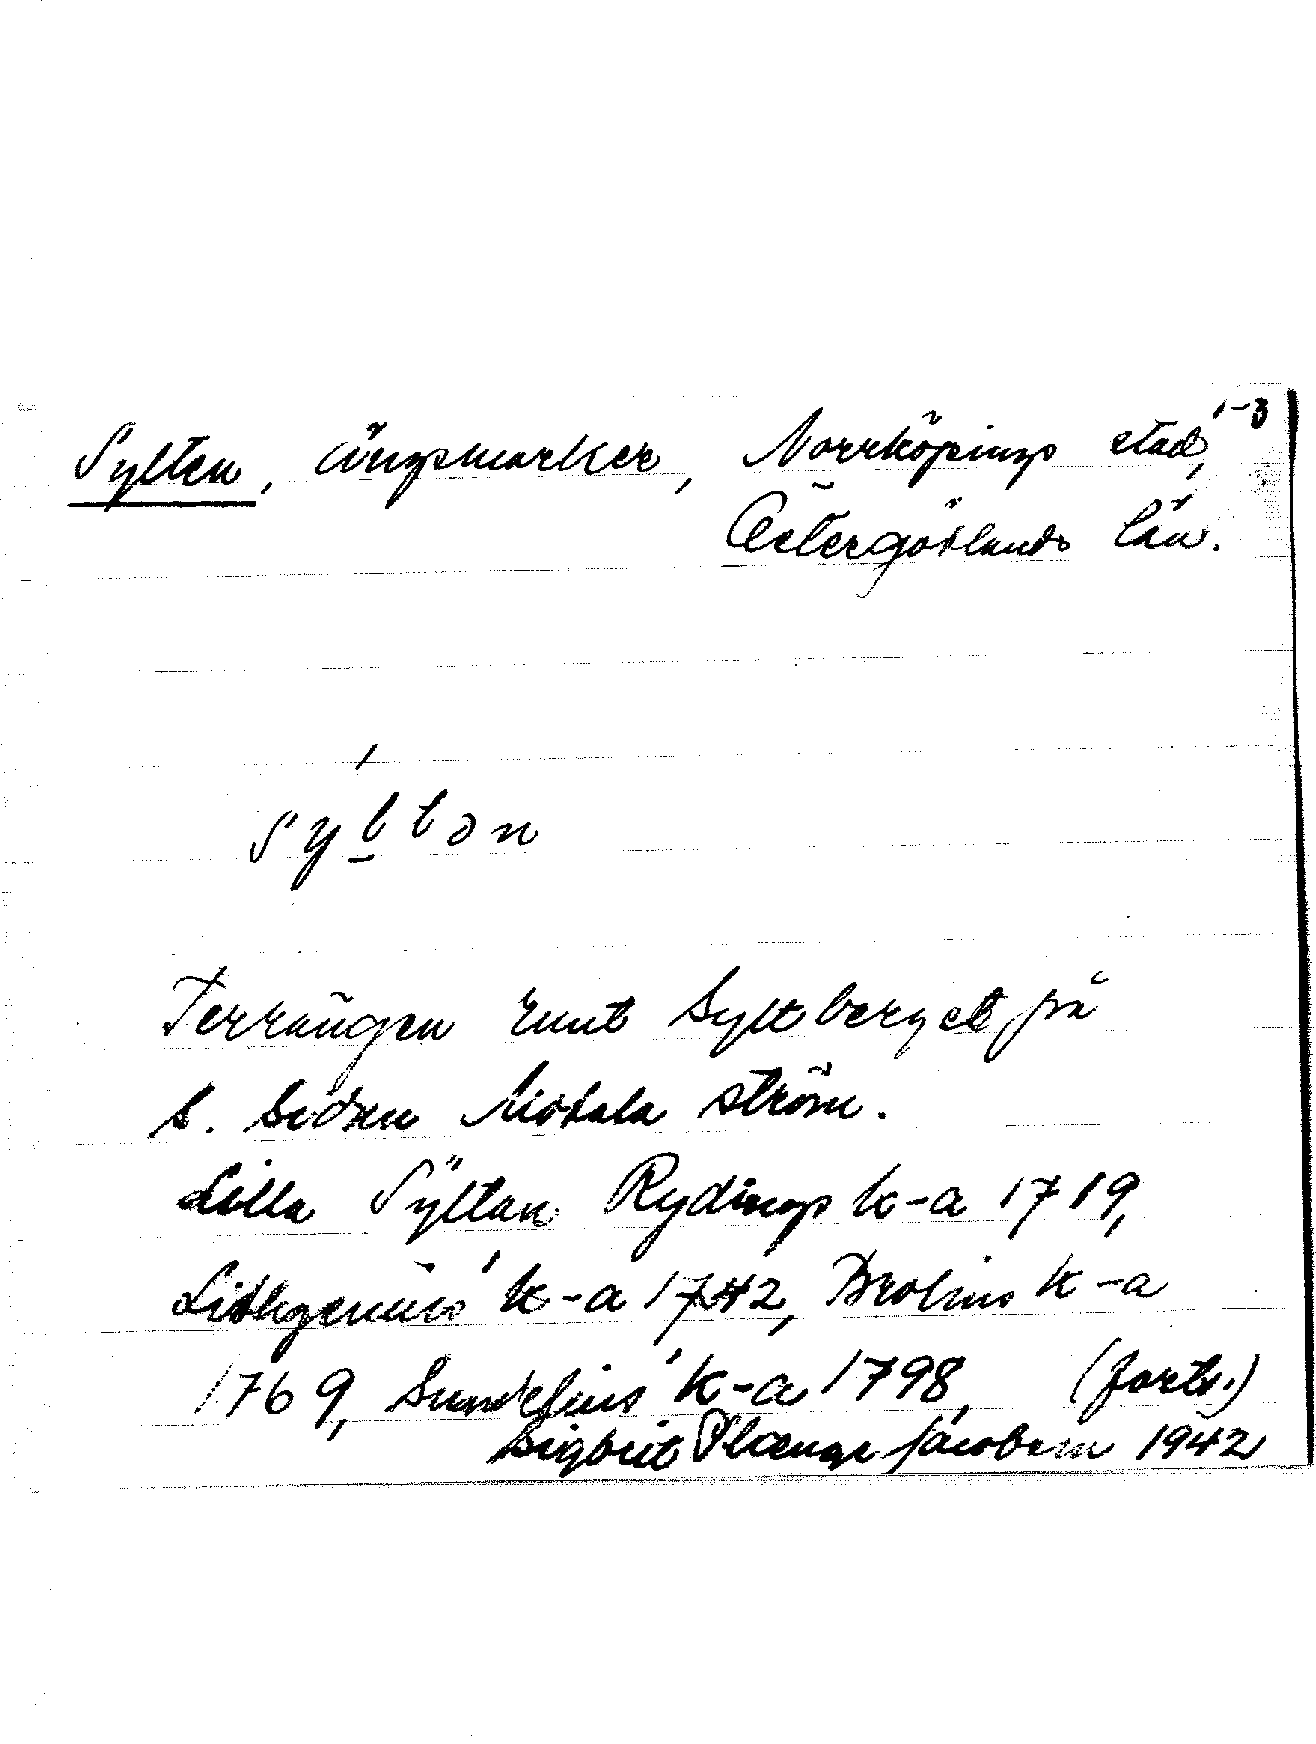 1-3
Sylten, ängsmarker, Norrköpings stad,
Östergötlands län.
sy´l̲tən
Terrängen runt Syltberget på
s. sidan Motala ström.
Lilla Syltan Rydings k-a 1719,
Lithgenius' k-a 1742, Brolins k-a
1769, Sundelius' k-a 1798, (forts.)
Sigbrit Plænge Jacobson 1942